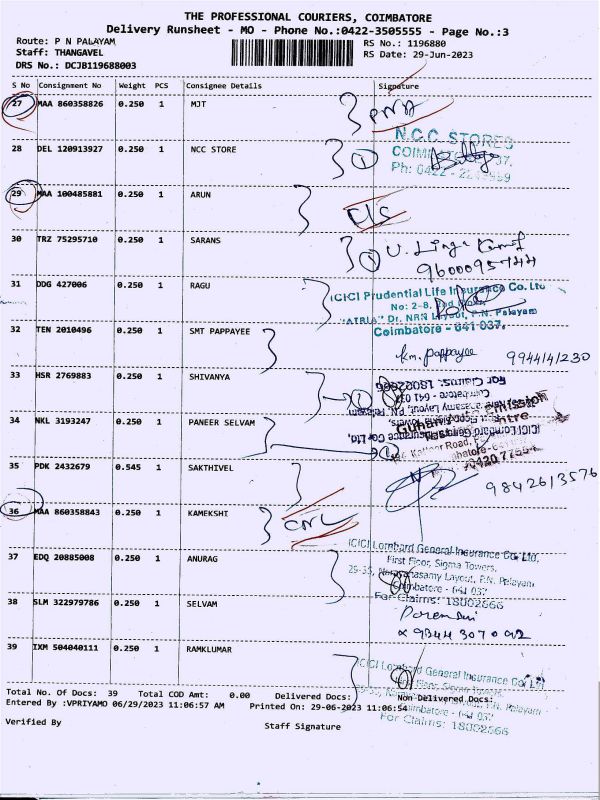 THE PROFESSIONAL COURIERS, COIMBATORE
Delivery Runsheet - MO - Phone No.:0422-3505555 - Page No.:3
Route: P N PALAYAM
RS No.: 1196880
Staff: THANGAVEL
RS Date: 29-Jun-2023
DRS No.: DCJB119688003
S No Consignment No Weight PCS Consignee Details Signature
27 MAA 860358826 0.250 1 MJT
28 DEL 120913927 0.250 1 NCC STORE
N.C.C. STORES
29 MAA 100485881 0.250 1 ARUN
30 TRZ 75295710 0.250 1 SARANS
31 DDG 427006 0.250 1 RAGU
ICICI Prudential Life Insurance Co. Ltd
No: 2-8, 2nd Floor,
"ATRIA" Dr. NRN Layout, P.N. Palayam
Coimbatore - 641 037.
32 TEN 2010496 0.250 1 SMT PAPPAYEE
km. pappayee 9944141230
33 HSR 2769883 0.250 1 SHIVANYA
For Claims: 18002666
34 NKL 3193247 0.250 1 PANEER SELVAM
35 PDK 2432679 0.545 1 SAKTHIVEL
9842613576
36 MAA 860358843 0.250 1 KAMEKSHI
CNL
ICICI Lombard General Insurance Co. Ltd,
First Floor, Sigma Towers,
29-35, Narayanasamy Layout, P.N. Palayam
Coimbatore - 641 037
For Claims: 18002666
37 EDQ 20885008 0.250 1 ANURAG
38 SLM 322979786 0.250 1 SELVAM
9344 307092
39 IXM 504040111 0.250 1 RAMKLUMAR
ICICI Lombard General Insurance Co. Ltd
First Floor, Sigma Towers,
Coimbatore - 641 037
For Claims: 18002666
Total No. Of Docs: 39 Total COD Amt: 0.00 Delivered Docs: Non Delivered Docs:
Entered By :VPRIYAMO 06/29/2023 11:06:57 AM Printed On: 29-06-2023 11:06:54
Verified By
Staff Signature